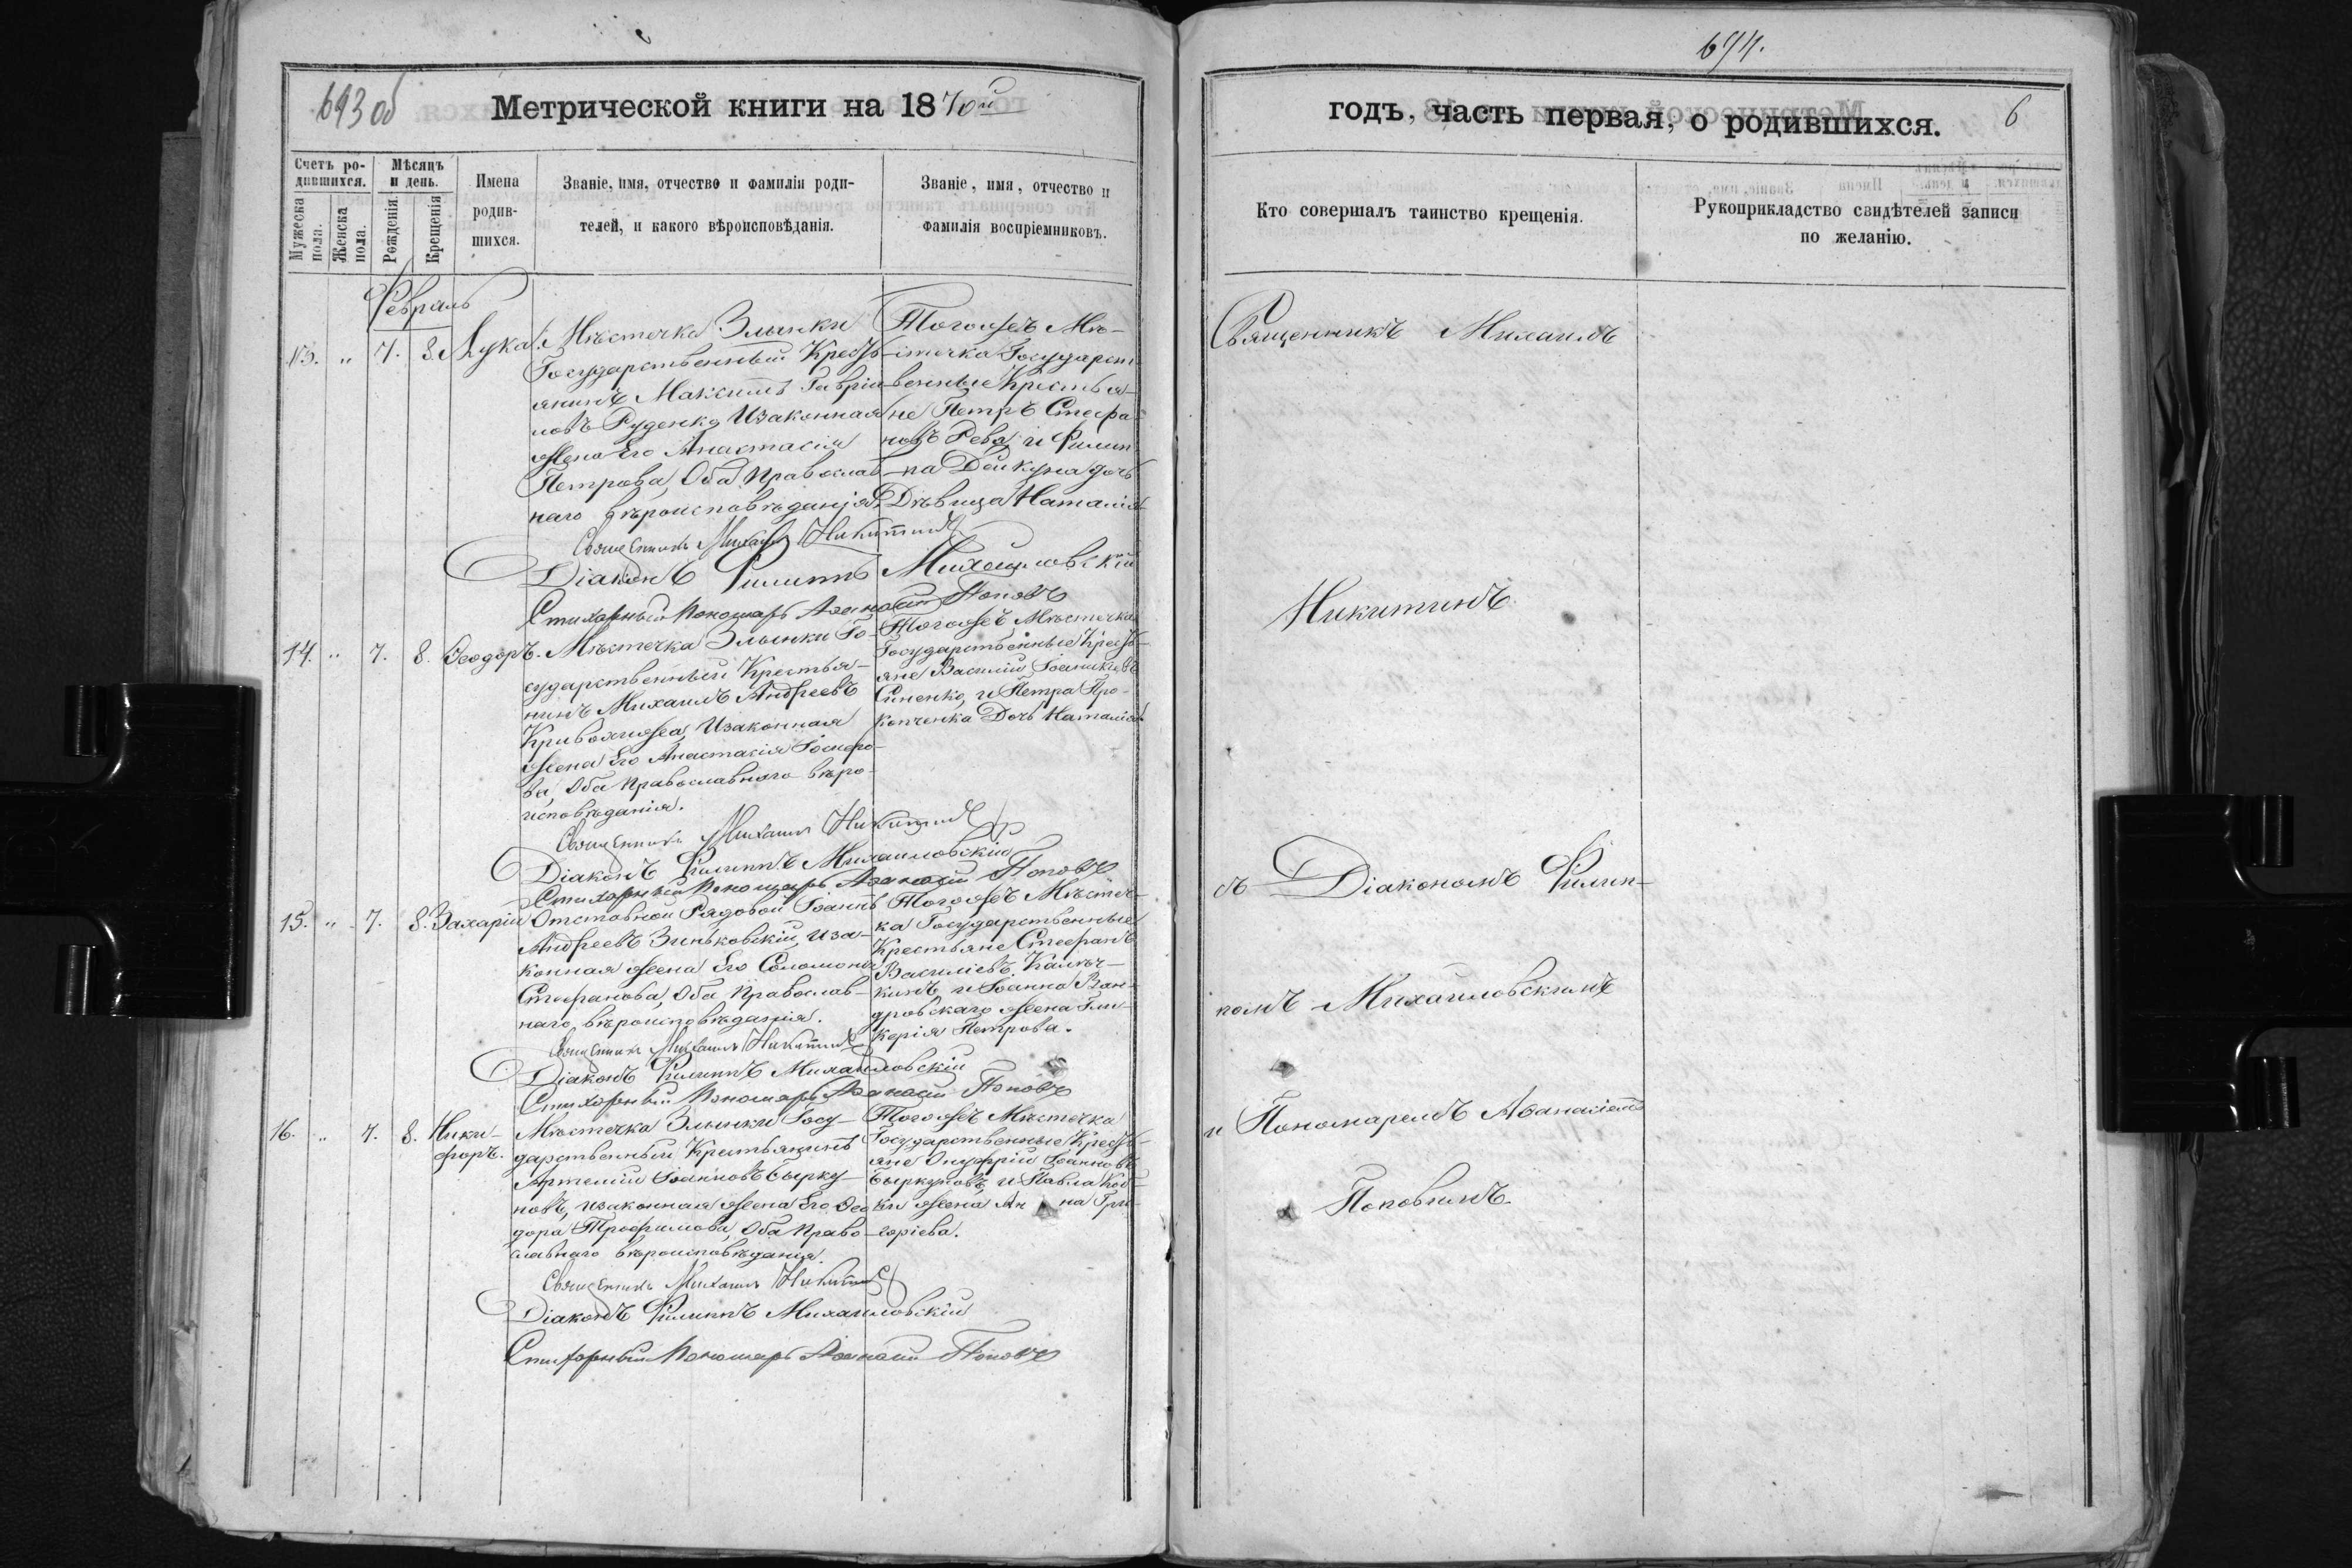 693 об
Метрической книги на 1870й
Счетъ ро-
дившихся.
Мужеска пола.
Женска пола.
Мѣсяцъ
и день.
Рожденія.
Крещенія
Имена
родив-
шихся.
Званіе, имя, отчество и фамилія роди-
телей, и какого вѣроисповѣданія.
Званіе, имя, отчество и
фамилія воспріемниковъ.
Февраль
13. " 7. 8. Лука.
Мѣстечка Злынки
Государственный Кресть-
янинъ Максимъ Гавріи-
ловъ Руденко, Изаконная
жена Его Анастасія
Петрова, Оба Православ-
наго вѣроисповѣданія.
Тогожеъ Мѣ-
стечка Государст-
венные Крестья-
не Петръ Стефа-
новъ Рева, и Филип-
па Дейкуна дочь
Дѣвица Наталія
Священникъ Михаилъ Никитинъ
Діаконъ Филиппъ Михайловскій
Стихарный Пономарь Аѳанасій Поповъ
14. " 7. 8. Ѳеодоръ.
Мѣстечка Злынки Го-
сударственный Крестья-
нинъ Михаилъ Андреевъ
Кривохижа, Изаконная
жена Его Анастасія Іосифо-
ва, Оба Православнаго вѣро-
исповѣданія.
Тогожеъ Мѣстечка
Государственные Кресть-
яне Василій Іоанникіевъ
Синенко, и Петра Про-
копченка Дочь Наталія
Священникъ Михаилъ Никитинъ
Діаконъ Филиппъ Михаиловскій
Стихарный Пономарь Аѳанасій Поповъ
15. " 7. 8. Захарій
Отставной Рядовой Іоаннъ
Андреевъ Зиньковскій, Иза-
конная жена Его Соломонія
Стефанова, Оба Православ-
наго вѣроисповѣданія.
Тогожеъ Мѣстеч-
ка Государственные
Крестьяне Стефанъ
Василіевъ
и Іоанна
жена Гли-
керія Петрова.
Священникъ Михаилъ Никитинъ
Діаконъ Филиппъ Михаиловскій
Стихарный Пономарь Аѳанасій Поповъ
16. " 7. 8. Ники-
форъ.
Мѣстечка Злынки Госу-
дарственный Крестьянинъ
Артемій Іоанновъ Бырку-
новъ, изаконная жена Его Ѳео-
дора Трофимова, Оба Право-
славнаго вѣроисповѣданія.
Тогожеъ Мѣстечка
Государственные Кресть-
яне Онуфрій Іоанновъ
Быркуновъ, и Павла
жена Анна Гри-
горіева.
Священникъ Михаилъ Никитинъ
Діаконъ Филиппъ Михаиловскій
Стихарный Пономарь Аѳанасій Поповъ
694.
годъ, часть первая, о родившихся.
6
Кто совершалъ таинство крещенія.
Рукоприкладство свидѣтелей записи
по желанію.
Священникъ Михаилъ
Никитинъ
съ Діакономъ Филип-
помъ Михаиловскимъ
и Пономаремъ Аѳанасіемъ
Поповымъ.